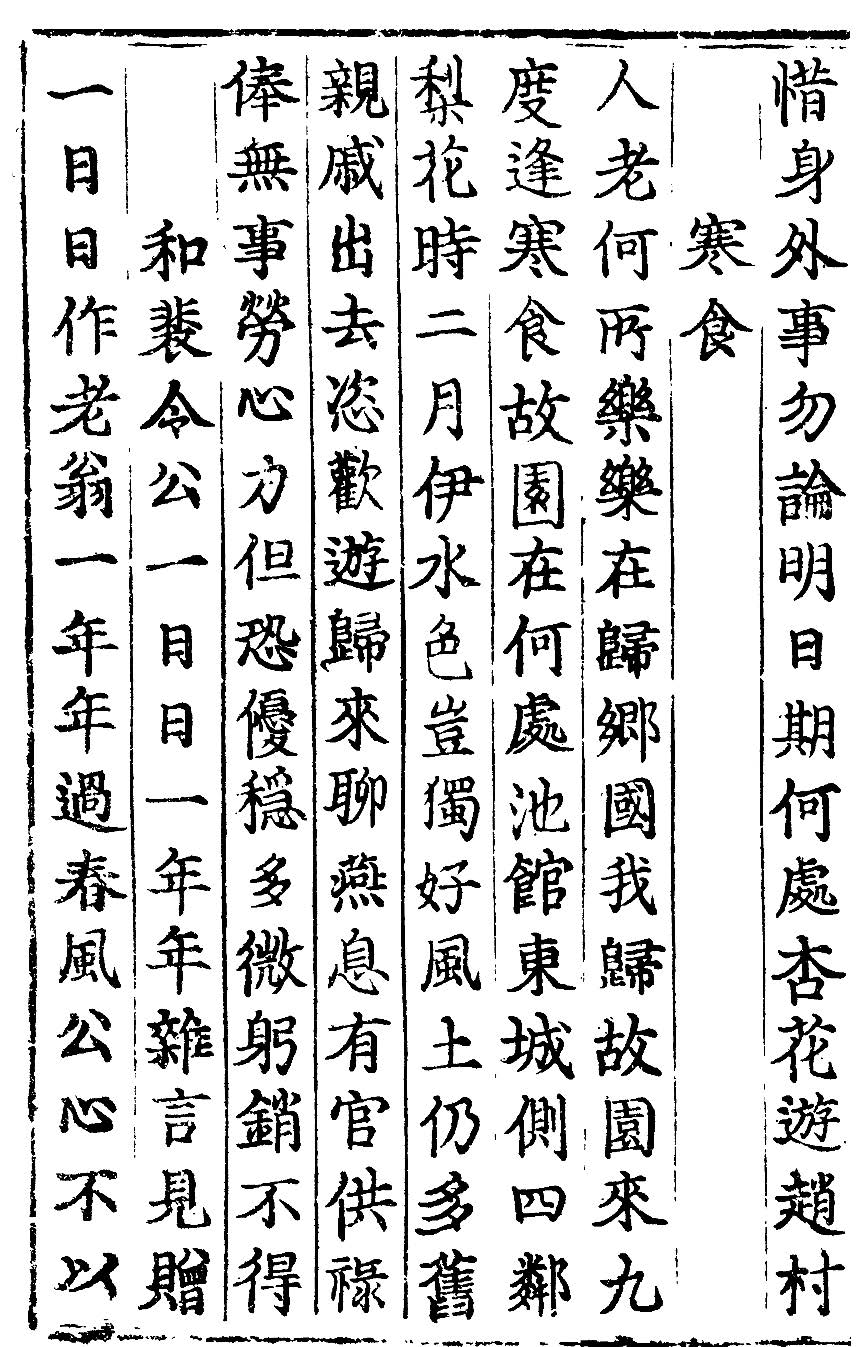 惜身外事勿論明日期何處杏花遊趙村
寒食
人老何所樂樂在歸鄉國我歸故園來九
度逢寒食故園在何處池館東城側四鄰
梨花時二月伊水色豈獨好風土仍多舊
親戚出去恣歡遊歸來聊燕息有官供祿
俸無事勞心力但恐優穩多微躬銷不得
和裴令公一日日一年年雜言見贈
一日日作老翁一年年過春風公心不以